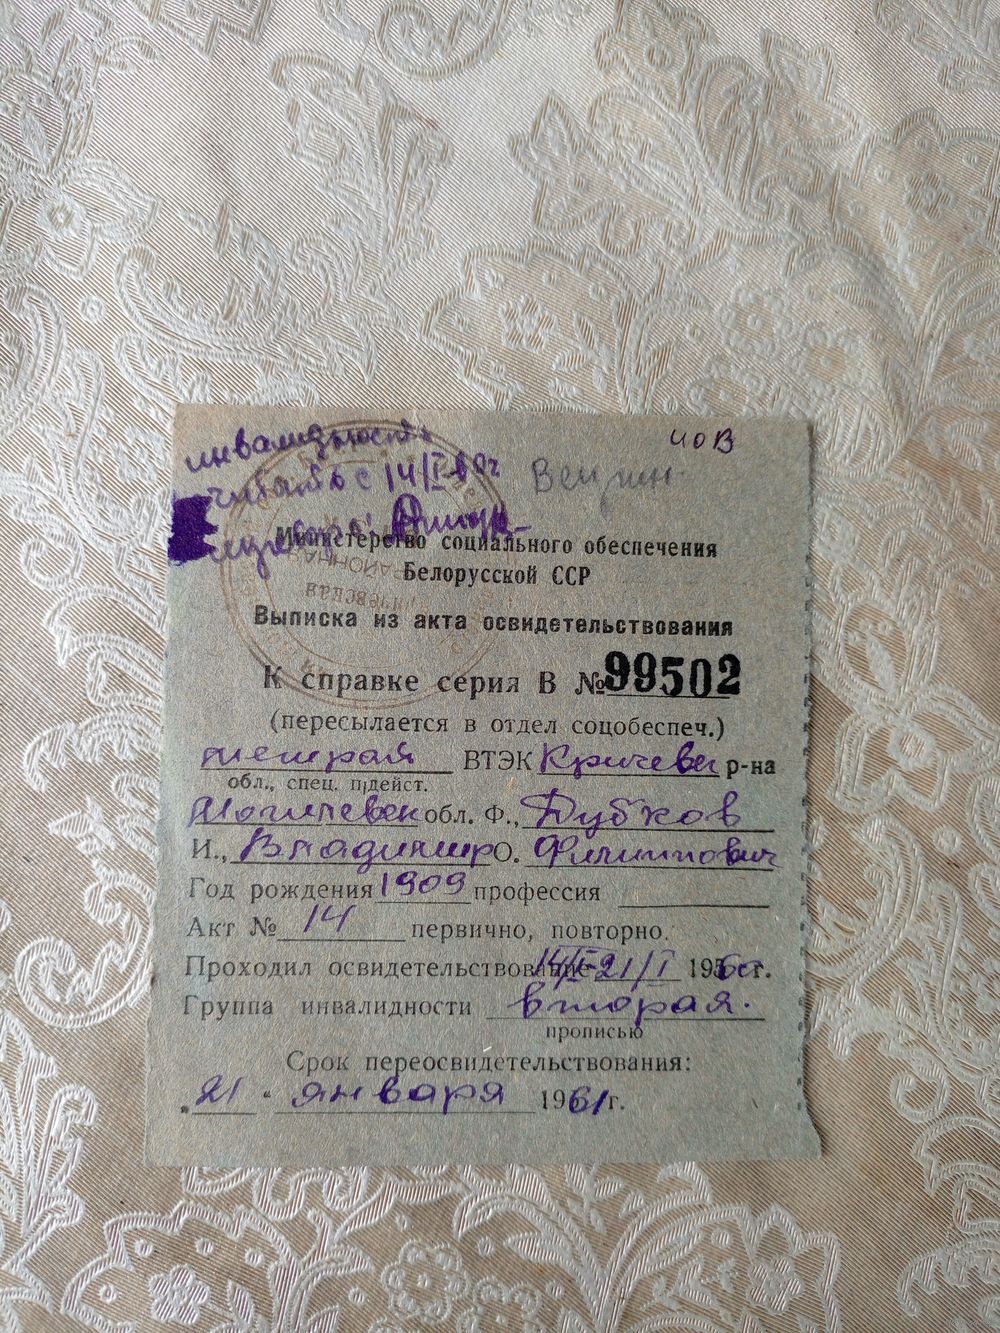 инвалидность
считать с 14/I-60г
ИОВ
Министерство социального обеспечения
Белорусской ССР
Выписка из акта освидетельствования
К справке серия В № 99502
(пересылается в отдел соцобеспеч.)
межрай ВТЭК Кричевск р-на
обл., спец. п/дейст.
Могилевск обл. Ф., Дубков
И., Владимир О. Филиппович
Год рождения 1909 профессия
Акт № 14 первично, повторно.
Проходил освидетельствование 14/I-21/I 1960г.
Группа инвалидности вторая.
прописью
Срок переосвидетельствования:
„21" января 1961г.